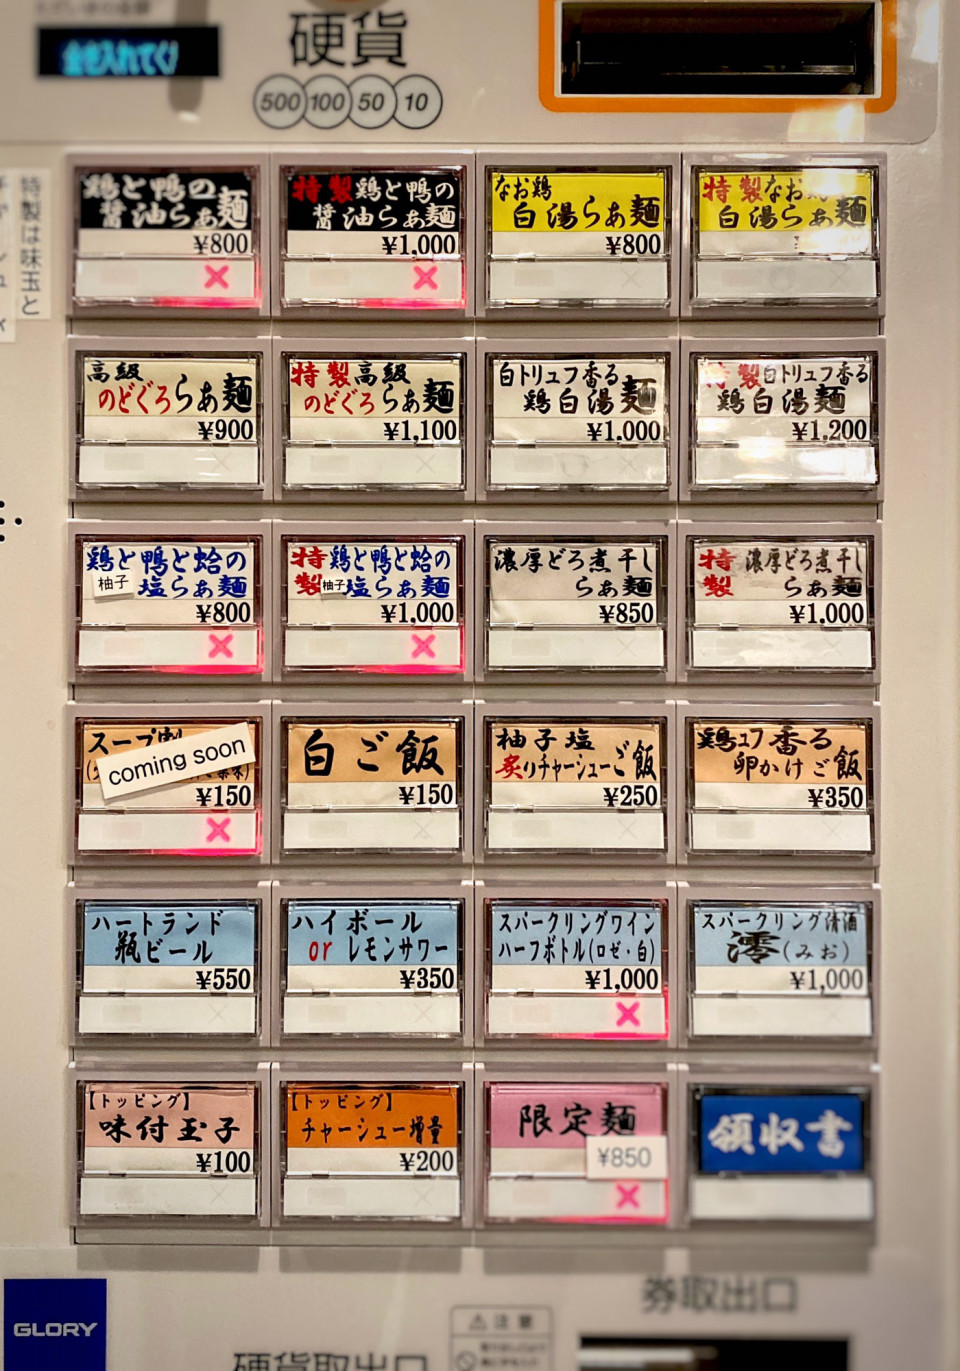 硬貨
500 100 50 10
特製は味玉と
鶏と鴨の
醤油らぁ麺
¥800
特製鶏と鴨の
醤油らぁ麺
¥1,000
なお鶏
白湯らぁ麺
¥800
特製なお鶏
白湯らぁ麺
高級
のどぐろらぁ麺
¥900
特製高級
のどぐろらぁ麺
¥1,100
白トリュフ香る
鶏白湯麺
¥1,000
特製白トリュフ香る
鶏白湯麺
¥1,200
鶏と鴨と蛤の
柚子塩らぁ麺
¥800
特製鶏と鴨と蛤の
柚子塩らぁ麺
¥1,000
濃厚どろ煮干し
らぁ麺
¥850
特製濃厚どろ煮干し
らぁ麺
¥1,000
スープ割
coming soon
¥150
白ご飯
¥150
柚子塩
炙りチャーシューご飯
¥250
鶏ュフ香る
卵かけご飯
¥350
ハートランド
瓶ビール
¥550
ハイボール
or レモンサワー
¥350
スパークリングワイン
ハーフボトル(ロゼ・白)
¥1,000
スパークリング清酒
澪(みお)
¥1,000
【トッピング】
味付玉子
¥100
【トッピング】
チャーシュー増量
¥200
限定麺
¥850
領収書
券取出口
GLORY
注意
硬貨取出口